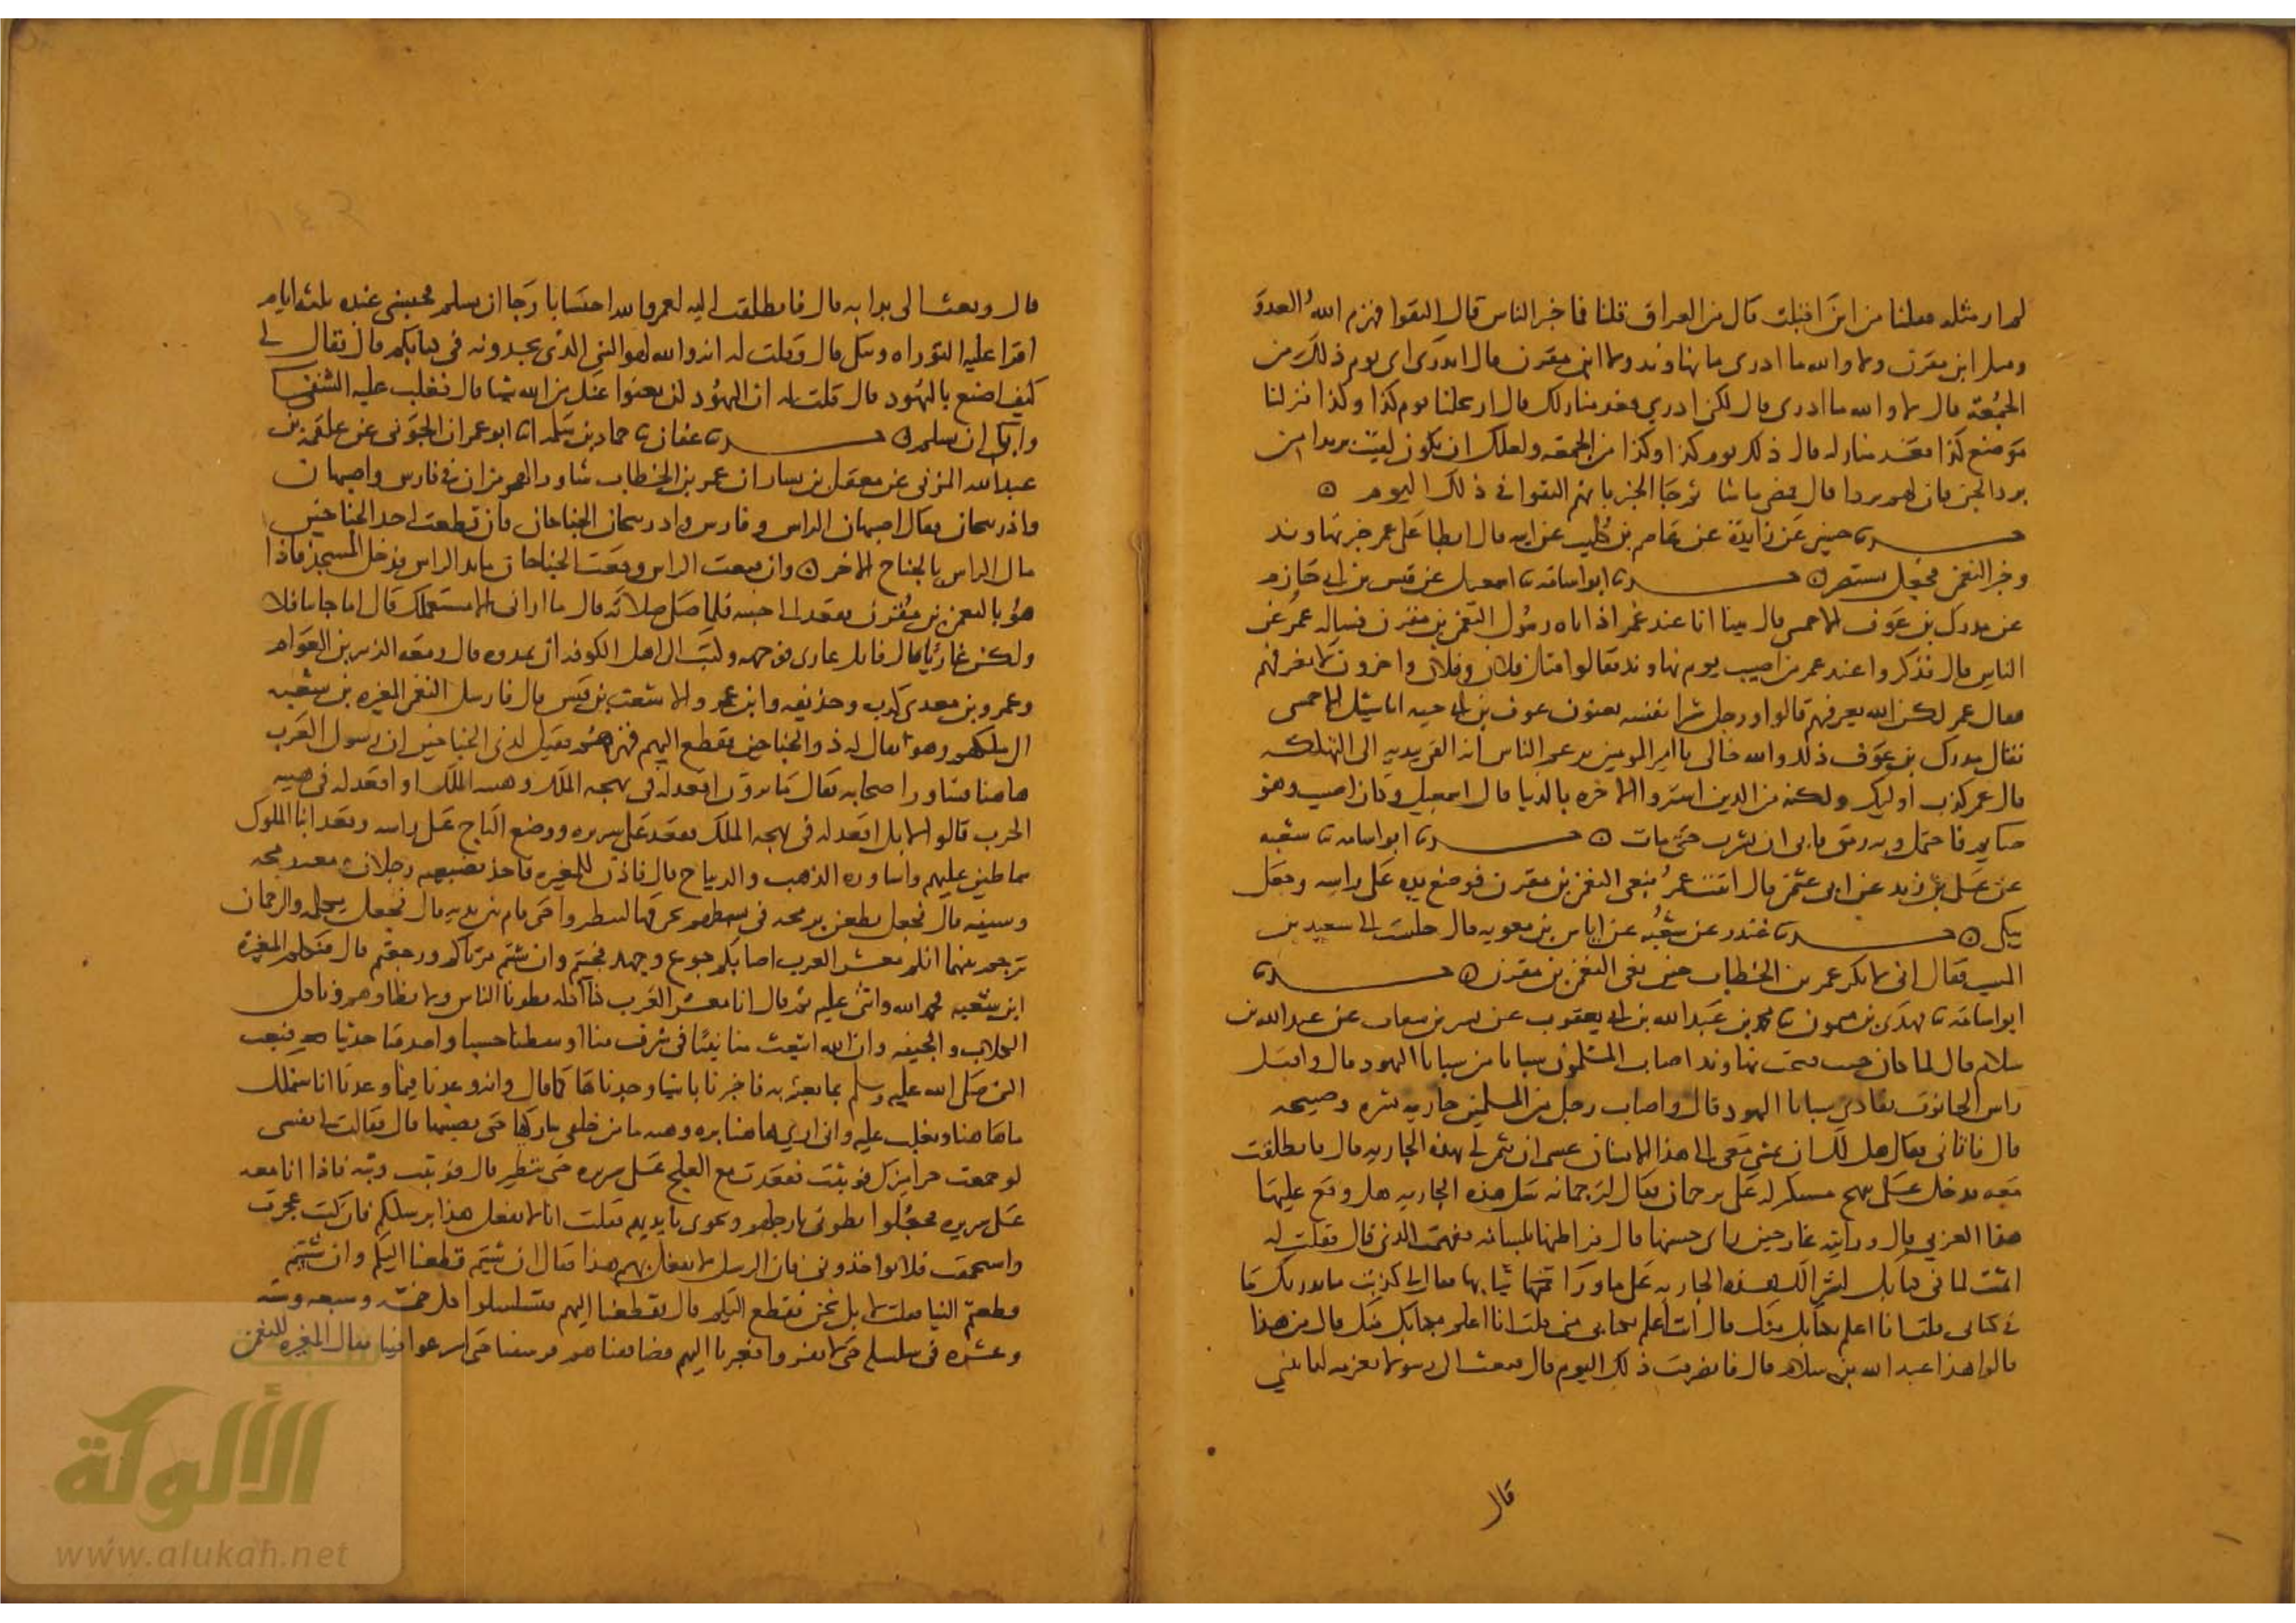 لم ار مثله فقلنا من اين اقبلت قال من العراق قلنا فما خبر الناس قال التقوا فهزم الله العدو
وقتل ابن مقرن ولا والله ما ادري ما نهاوند ولا ابن مقرن قال اتدري اي يوم ذلك من
الجمعة قال لا والله ما ادري قال لكن ادري فعد منازلك قال ارتحلنا يوم كذا وكذا فنزلنا
موضع كذا فعد منازله قال ذلك يوم كذا وكذا من الجمعة ولعلك ان تكون لقيت بريدا من
برد الجن فان لهم بردا قال فمضى ما شا ثم جا الخبر بانهم التقوا في ذلك اليوم
حدثنا حسين عن زايدة عن عاصم بن كليب عن ابيه قال ابطا على عمر خبر نهاوند
وخبر النعمن فجعل يستنصر حدثنا ابو اسامة ثنا اسمعيل عن قيس بن ابي حازم
عن مدرك بن عوف الاحمسي قال بينا انا عند عمر اذ اتاه رسول النعمن بن مقرن فساله عمر عن
الناس قال فذكروا عند عمر من اصيب يوم نهاوند فقالوا قتل فلان وفلان واخرون لا نعرفهم
فقال عمر لكن الله يعرفهم قالوا ورجل شرا نفسه يعنون عوف بن ابي حية ابا شبل الاحمسي
فقال مدرك بن عوف ذلك والله خالي يا امير المومنين يزعم الناس انه القى بيديه الى التهلكة
قال عمر كذب اوليك ولكنه من الذين اشتروا الاخرة بالدنيا قال اسمعيل وكان اصيب وهو
صايم فاحتمل وبه رمق فابى ان يشرب حتى مات حدثنا ابو اسامة ثنا شعبة
عن علي بن زيد عن ابي عثمن قال اتيت عمر بنعي النعمن بن مقرن فوضع يده على راسه وجعل
يبكي حدثنا غندر عن شعبة عن اياس بن معوية قال جلست الى سعيد بن
المسيب فقال اني لاذكر عمر بن الخطاب حين نعى النعمن بن مقرن حدثنا
ابو اسامة ثنا مهدي بن ميمون ثنا محمد بن عبد الله بن ابي يعقوب عن بشر بن شغاف عن عبد الله بن
سلام قال لما كان حين فتحت نهاوند اصاب المسلمون سبايا من سبايا اليهود قال واقبل
راس الجالوت يفادي سبايا اليهود قال واصاب رجل من المسلمين جارية بسرة وصبيحة
قال فاتاني فقال هل لك ان تمشي معي الى هذا الانسان عسى ان يثمن لي بهذه الجارية قال فانطلقت
معه فدخل على شيخ مستكبر له ترجمان فقال لترجمانه سل هذه الجارية هل وقع عليها
هذا العربي قال ورايته غار حين راى حسنها قال فراطنها بلسانه ففهمت الذي قال فقلت له
اثمت لما في كتابك بسوالك هذه الجارية على ما ورا ثيابها فقال لي كذبت ما يدريك ما
في كتابي قلت انا اعلم بكتابك منك قال انت اعلم بكتابي مني قلت انا اعلم بكتابك منك قال من هذا
قالوا هذا عبد الله بن سلام قال فانصرفت ذلك اليوم قال فبعث الي رسولا بعزمة لتاتيني
قال
قال وبعث الي بدابة قال فانطلقت اليه لعمرو الله احتسابا رجا ان يسلم فحبسني عنده ثلثة ايام
اقرا عليه التوراة ويبكي قال وقلت له انه والله لهو النبي الذي تجدونه في كتابكم قال فقال لي
كيف اصنع باليهود قال قلت له ان اليهود لن يغنوا عنك من الله شيا قال فغلب عليه الشقا
وابى ان يسلم حدثنا عفان ثنا حماد بن سلمة انا ابو عمران الجوني عن علقمة بن
عبد الله المزني عن معقل بن يسار ان عمر بن الخطاب شاور الهرمزان في فارس واصبهان
واذربيجان فقال اصبهان الراس وفارس واذربيجان الجناحان فان قطعت احد الجناحين
مال الراس بالجناح الاخر وان قطعت الراس وقعت الجناحان فابدا بالراس فدخل المسجد فاذا
هو بالنعمن بن مقرن فقعد الى جنبه فلما صلى صلاته قال ما اراني الا مستعملك قال اما جابيا فلا
ولكن غازيا قال فانك غازي فوجهه وكتب الى اهل الكوفة ان يمدوه قال ومعه الزبير بن العوام
وعمرو بن معدي كرب وحذيفة وابن عمر والاشعث بن قيس قال فارسل النعمن المغيرة بن شعبة
الى ملكهم وهو يقال له ذو الجناحين فقطع اليهم نهرهم فقيل لذي الجناحين ان رسول العرب
هاهنا فشاور اصحابه فقال ما ترون اقعد له في بهجة الملك وهيبة الملك او اقعد له في هيبة
الحرب قالوا لا بل اقعد له في بهجة الملك فقعد على سريره ووضع التاج على راسه وقعد ابنا الملوك
سماطين عليهم واساورة الذهب والديباج قال فاذن للمغيرة فاخذ بضبعيه رجلان ومعه رمحه
وسيفه قال فجعل يطعن برمحه في بسطهم يخرقها ليتطيروا حتى قام بين يديه قال فجعل يكلمه والترجمان
يترجم بينهما انكم معشر العرب اصابكم جوع وجهد فجيتم وان شيتم مرناكم ورجعتم قال فتكلم المغيرة
ابن شعبة فحمد الله واثنى عليه ثم قال انا معشر العرب كنا اذلة يطونا الناس ولا نطاوهم وناكل
الكلاب والجيفة وان الله ابتعث منا نبيا في شرف منا اوسطنا حسبا واصدقنا حديثا فبعث
النبي صلى الله عليه وسلم بما بعثه به فاخبرنا باشيا وجدناها كما قال وانه وعدنا فيما وعدنا انا سنملك
ما هاهنا ونغلب عليه واني ارى هاهنا بزة وهيبة ما من خلفي بتاركها حتى يصيبها قال فقالت لي نفسي
لو جمعت جراميزك فوثبت فقعدت مع العلج على سريره حتى يتطير قال فوثبت وثبة فاذا انا معه
على سريره فجعلوا يطوني بارجلهم ويجروني بايديهم فقلت انا لا نفعل هذا برسلكم فان كنت عجزت
واستحمقت فلا تواخذوني فان الرسل لا يفعل بهم هذا فقال ان شيتم قطعنا اليكم وان شيتم
قطعتم الينا فقلت لا بل نحن نقطع اليكم قال فقطعنا اليهم فتسلسلوا كل خمسة وسبعة وستة
وعشرة في سلسلة حتى لا يفروا فعبرنا اليهم فصاففناهم فرشقونا حتى اسرعوا فينا فقال المغيرة للنعمن
الألوكة
www.alukah.net